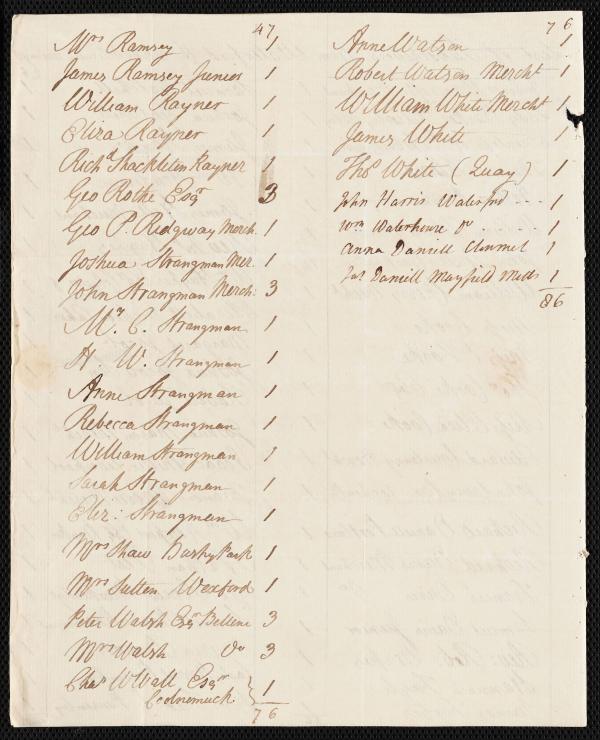 47
Mrs Ramsey 1
James Ramsey Junior 1
William Rayner 1
Eliza Rayner 1
Richd Shackleton Rayner 1
Geo Rothe Esqr 3
Geo P. Ridgway Merch. 1
Joshua Strangman Mer. 1
John Strangman Merch: 3
Mr. C. Strangman 1
H. W. Strangman 1
Anne Strangman 1
Rebecca Strangman 1
William Strangman 1
Sarah Strangman 1
Eliz: Strangman 1
Mrs Shaw Bushy Park 1
Mrs Sutton Wexford 1
Peter Walsh Esqr Belline 3
Mrs Walsh Do 3
Chas W Wall Esqr
Coolnemuck } 1
76
76
Anne Watson 1
Robert Watson Mercht 1
William White Mercht 1
James White 1
Thos White (Quay) 1
John Harris Waterford ... 1
Wm Waterhouse Do ..... 1
Anna Daniell Clonmel 1
Jas Daniell Mayfield Mills 1
86